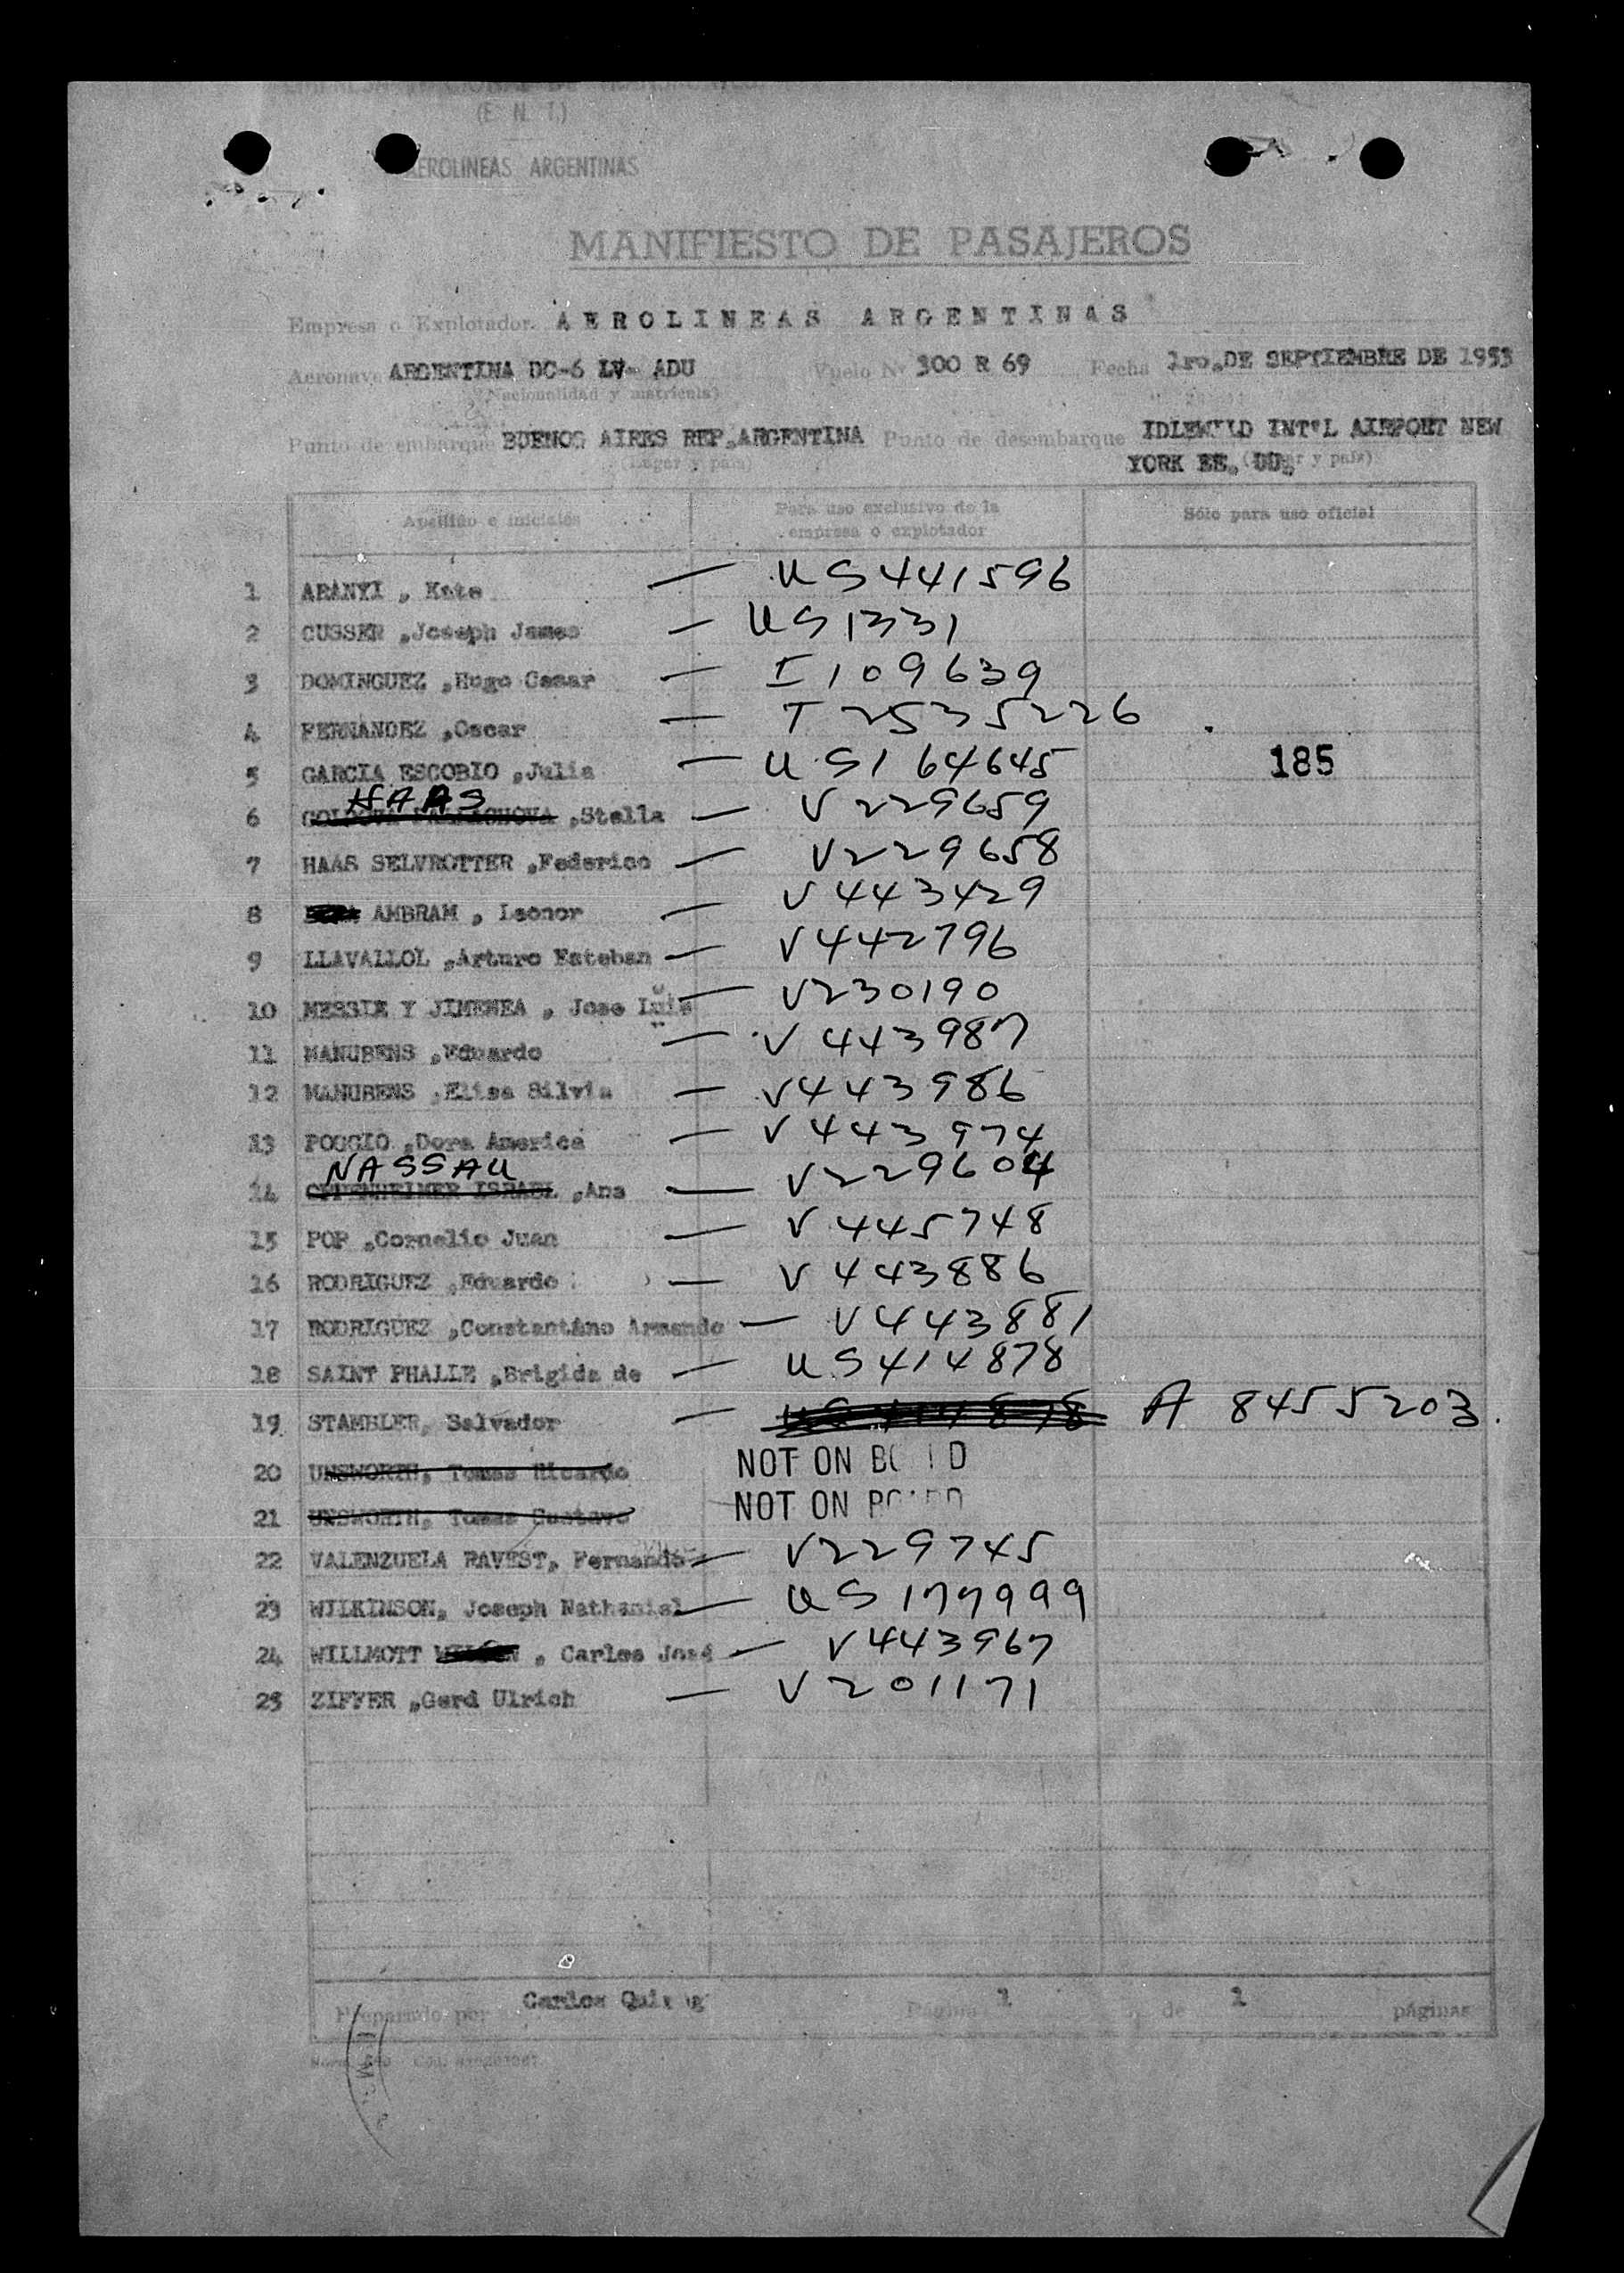 (E. N. T.)
AEROLINEAS ARGENTINAS
MANIFIESTO DE PASAJEROS
Empresa o Explotador AEROLINEAS ARGENTINAS
Aeronave ARGENTINA DC-6 LV- ADU Vuelo Nº 300 R 69 Fecha 1ro. DE SEPTIEMBRE DE 1953
(Nacionalidad y matrícula)
Punto de embarque BUENOS AIRES REP. ARGENTINA Punto de desembarque IDLEWILD INT'L AIRPORT NEW
YORK EE. UU.
(Lugar y país) (Lugar y país)
Apellido e iniciales Para uso exclusivo de la empresa o explotador Sólo para uso oficial
1 ARANYI , Kate — US441596
2 CUSSEN ,Joseph James — US1331
3 DOMINGUEZ ,Hugo Cesar — I109639
4 FERNANDEZ ,Oscar — T2535226
5 GARCIA ESCOBIO ,Julia — US164645 185
6 HAAS ,Stella — V229659
7 HAAS SELVROTTER ,Federico — V229658
8 AMBRAM , Leonor — V443429
9 LLAVALLOL ,Arturo Esteban — V442796
10 MESSIE Y JIMENEA , Jose Luis — V230190
11 MANUBENS ,Eduardo — V443987
12 MANUBENS ,Elisa Silvia — V443986
13 POGGIO ,Dora America — V443974
14 NASSAU OPPENHEIMER ISRAEL ,Ana — V229604
15 POP ,Cornelio Juan — V445748
16 RODRIGUEZ ,Eduardo — V443886
17 RODRIGUEZ ,Constantino Armando — V443881
18 SAINT PHALLE ,Brigida de — US414878
19 STAMBLER, Salvador — US 414878 A 8455203
20 UNSWORTH, Tomas Ricardo NOT ON BOARD
21 UNSWORTH, Tomas Gustavo NOT ON BOARD
22 VALENZUELA RAVEST, Fernando — V229745
23 WILKINSON, Joseph Nathanial — US177999
24 WILLMOTT , Carlos José — V443967
25 ZIFFER ,Gerd Ulrich — V201171
Preparado por Carlos Página 1 de 1 páginas